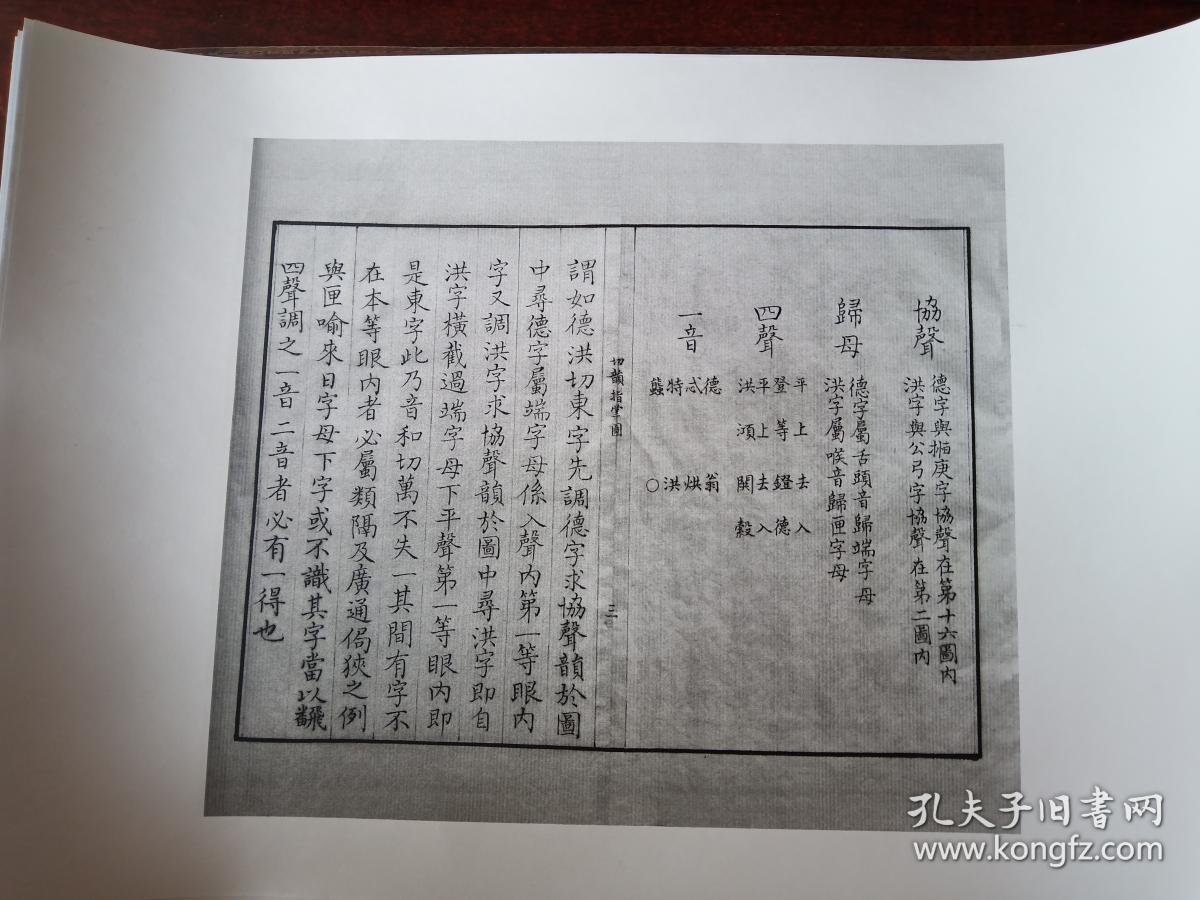 協聲
德字與搄庚字協聲在第十六圖内
洪字與公弓字協聲在第二圖内
歸母
德字屬舌頭音歸端字母
洪字屬喉音歸匣字母
四聲
平上去入
登等鐙德
平上去入
洪澒鬨縠
一音
德翁
忒烘
特洪
螚○
切韻指掌圖
三
謂如德洪切東字先調德字求協聲韻於圖
中尋德字屬端字母係入聲内第一等眼内
字又調洪字求協聲韻於圖中尋洪字即自
洪字橫截過端字母下平聲第一等眼内即
是東字此乃音和切萬不失一其間有字不
在本等眼内者必屬類隔及廣通侷狹之例
與匣喻來日字母下字或不識其字當以翻
四聲調之一音二音者必有一得也
孔夫子旧书网
www.kongfz.com